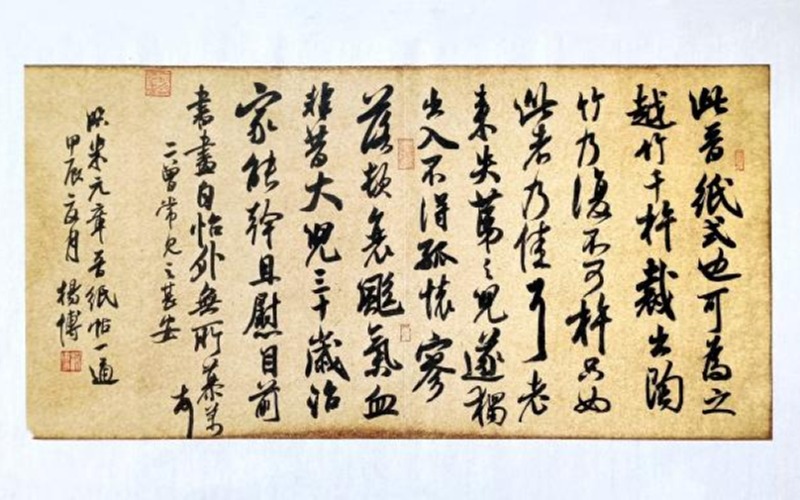 此晉紙式也可為之
越竹千杵裁出陶
竹乃復不可杵只如
此者乃佳耳老
來失第二兒遂獨
出入不得孤懷寥
落頓衰颯氣血
非昔大兒三十歲治
家能幹且慰目前
書畫自怡外無所慕芾
二曾常見之甚安
臨米元章晉紙帖一通
甲辰月楊博